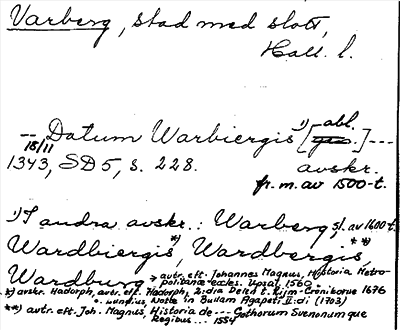 Varberg, stad med slott,
Hall. l.
-- Datum Warbiergis ¹) [abl.] ---
18/11
1343, SD 5, s. 228. avskr.
fr. m. av 1500-t.
¹) I andra avskr.: Warberg, sl. av 1600-t.
Wardbiergis *), Wardbergis **)
Wardburg
avtr. eft. Johannes Magnus, Historia Metro-
politanæ eccles. Upsal. 1560
*) avskr. Hadorph, avtr. eft. Hadorph, 2:dra Del t. Rijm-Crönikorne 1676
o. Lundius, Notæ in Bullam Agapeti II:di (1703)
**) avtr. eft. Joh. Magnus, Historia de --- Gothorum Sveonumque
Regibus ... 1554